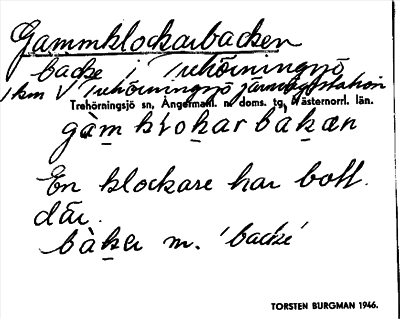 Gammklockarbacken
backe i Trehörningsjö
1 km V Trehörningsjö järnvägsstation
Trehörningsjö sn, Ångermanl. n. doms. tg, Västernorrl. län.
gàm klokar bakæn
En klockare har bott
där.
bàker m. 'backe'
TORSTEN BURGMAN 1946.